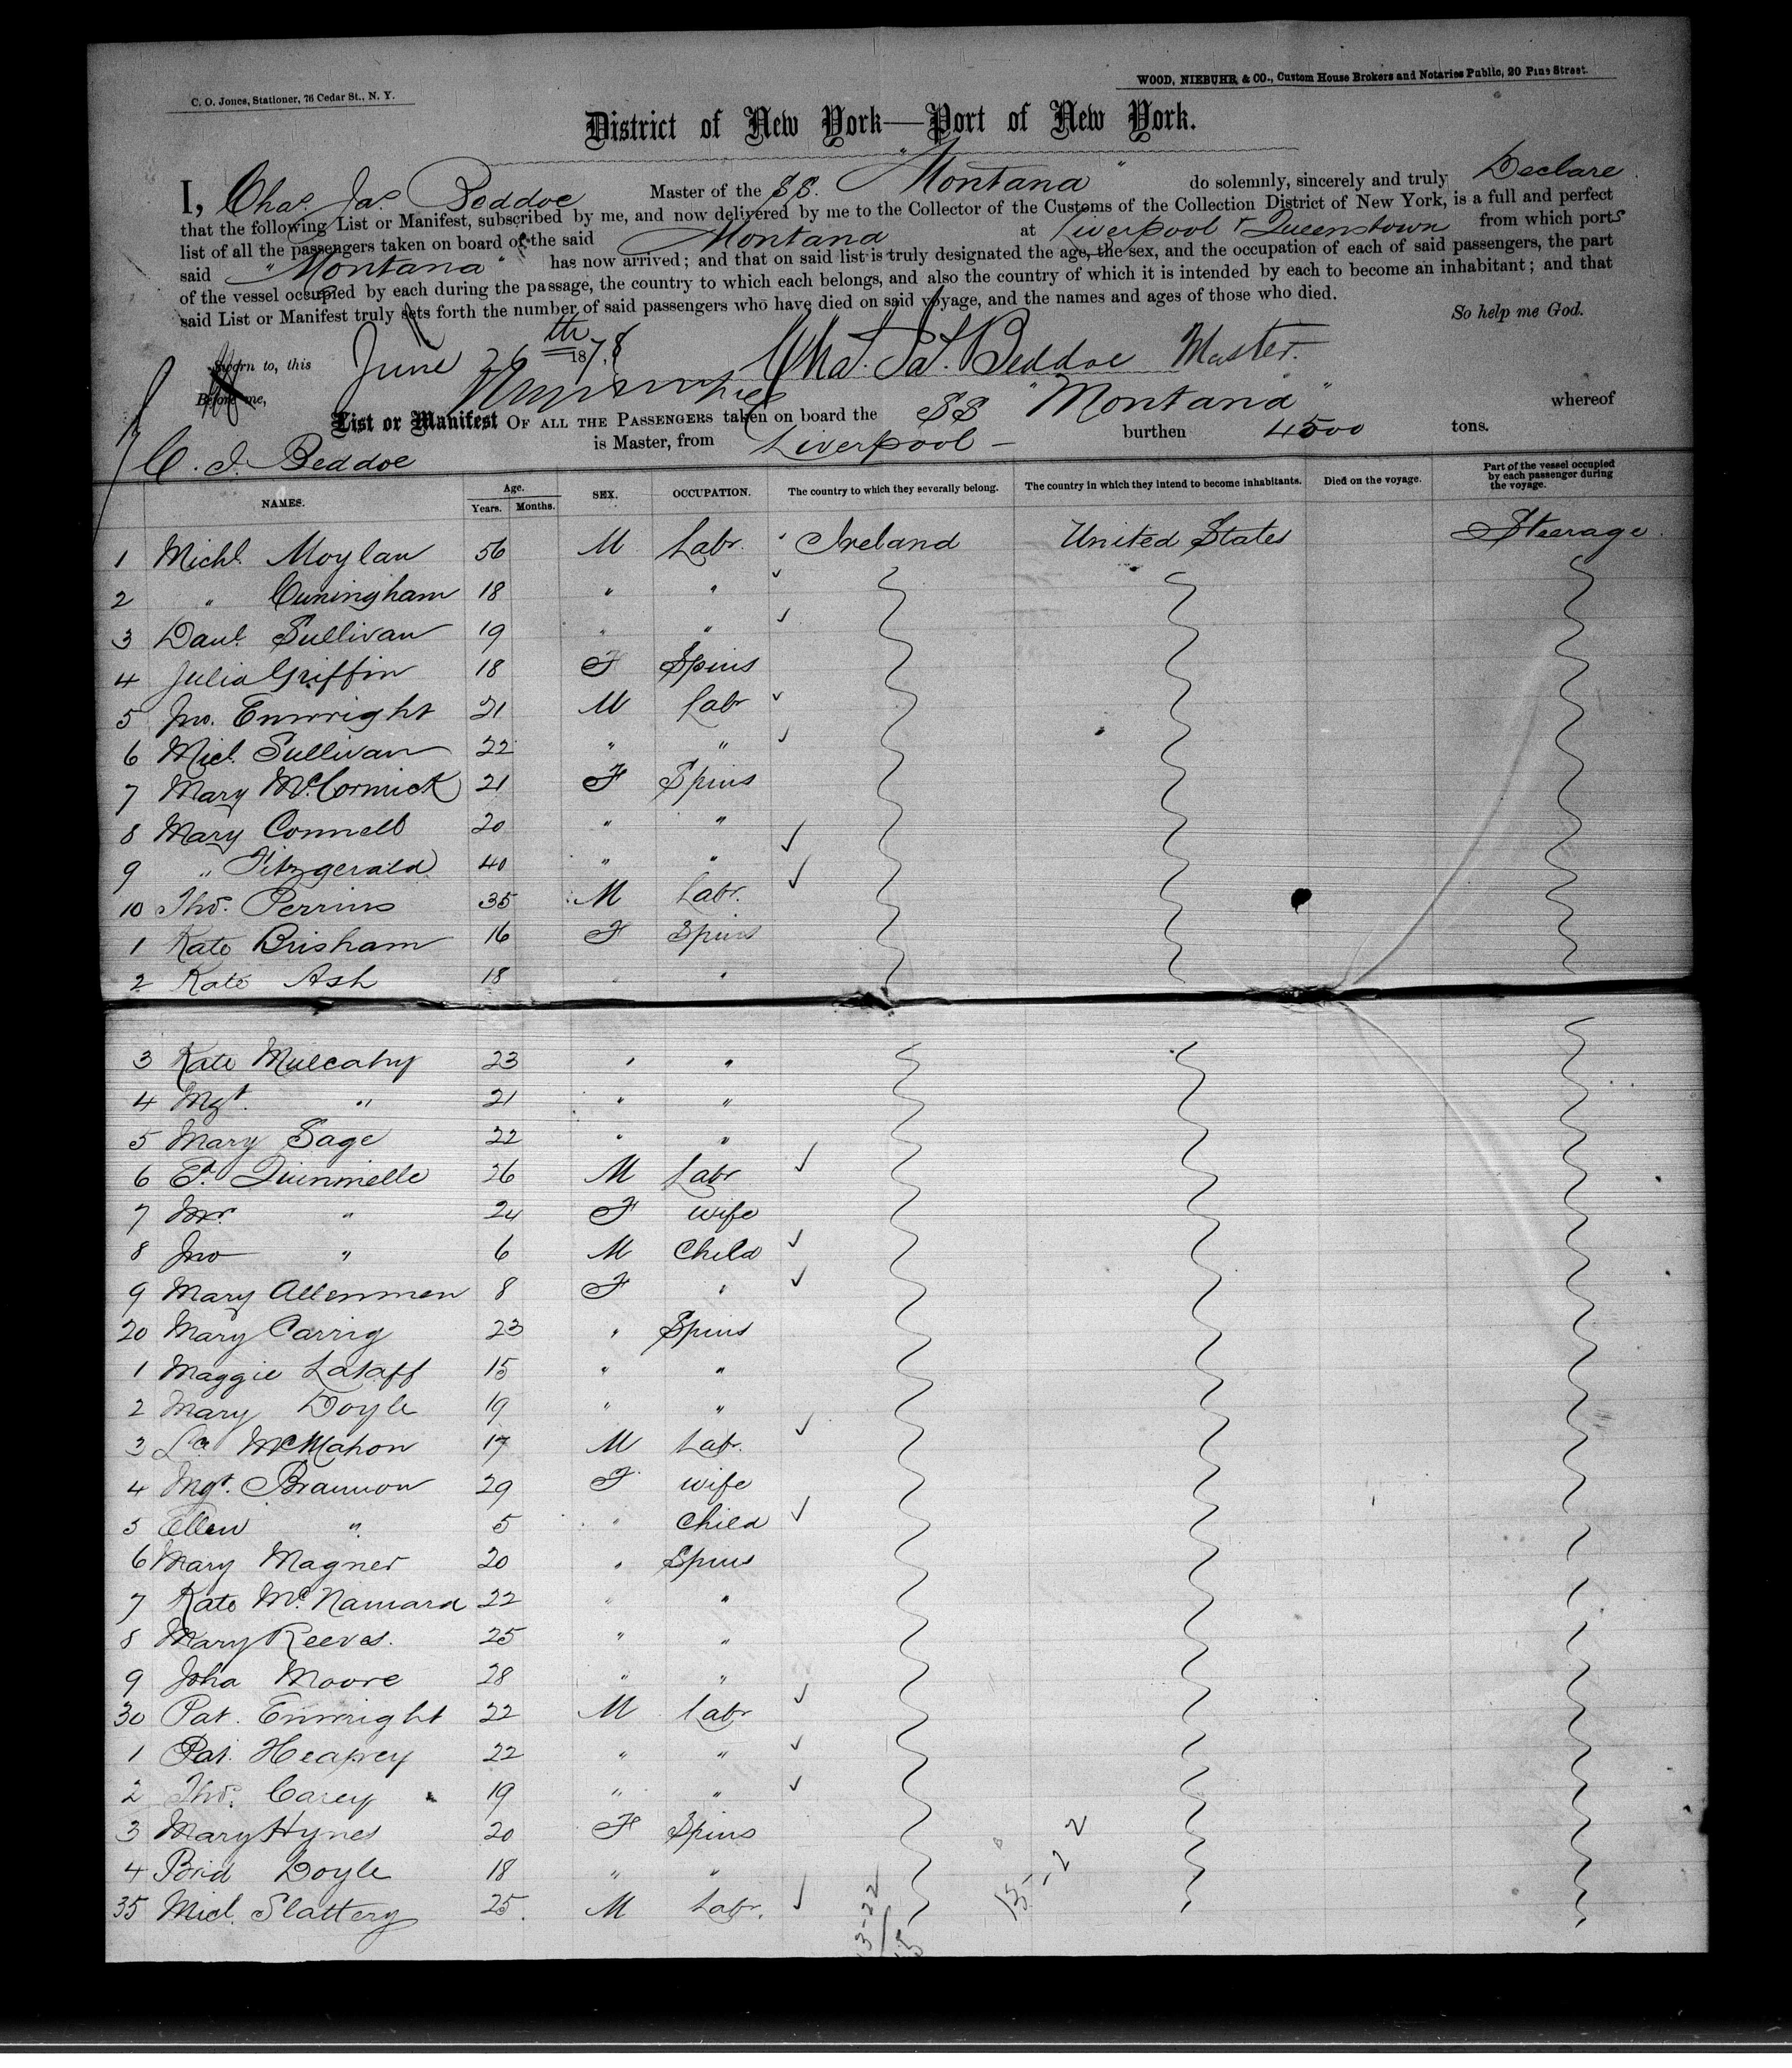 C. O. Jones, Stationer, 76 Cedar St., N. Y.
WOOD, NIEBUHR & CO., Custom House Brokers and Notaries Public, 20 Pine Street.
District of New York—Port of New York.
I, Chas. Jas. Beddoe Master of the SS. "Montana" do solemnly, sincerely and truly Declare
that the following List or Manifest, subscribed by me, and now delivered by me to the Collector of the Customs of the Collection District of New York, is a full and perfect
list of all the passengers taken on board of the said Montana at Liverpool & Queenstown from which ports
said "Montana" has now arrived; and that on said list is truly designated the age, the sex, and the occupation of each of said passengers, the part
of the vessel occupied by each during the passage, the country to which each belongs, and also the country of which it is intended by each to become an inhabitant; and that
said List or Manifest truly sets forth the number of said passengers who have died on said voyage, and the names and ages of those who died.
So help me God.
Sworn to, this June 26th 1878 Chas. Jas. Beddoe Master.
Before me,
List or Manifest OF ALL THE PASSENGERS taken on board the SS "Montana" whereof
C. J. Beddoe is Master, from Liverpool — burthen 4500 tons.
NAMES. Age. Years. Months. SEX. OCCUPATION. The country to which they severally belong. The country in which they intend to become inhabitants. Died on the voyage. Part of the vessel occupied by each passenger during the voyage.
1 Michl. Moylan 56 M Labr. Ireland United States Steerage
2 " Cuningham 18 " "
3 Danl. Sullivan 19 " "
4 Julia Griffin 18 F Spins
5 Jno. Enwright 21 M Labr
6 Micl. Sullivan 22 " "
7 Mary McCormick 21 F Spins
8 Mary Connell 20 " "
9 " Fitzgerald 40 " "
10 Thos. Perrins 35 M Labr.
1 Kate Brisham 16 F Spins
2 Kate Ash 18 "
3 Kate Mulcahy 23 " "
4 Mgt. " 21 " "
5 Mary Sage 22 " "
6 P. Quinnelle 26 M Labr
7 Mrs. " 24 F wife
8 Jno " 6 M Child
9 Mary Allenmen 8 F "
20 Mary Carrig 23 " Spins
1 Maggie Lataff 15 " "
2 Mary Doyle 19 " "
3 La McMahon 17 M Labr.
4 Mgt. Brannon 29 F wife
5 Ellen " 5 " Child
6 Mary Magner 20 " Spins
7 Kate McNamara 22 " "
8 Mary Reeves. 25 " "
9 Joha Moore 28 " "
30 Pat. Enwright 22 M Labr
1 Pat. Heapey 22 " "
2 Thos. Carey 19 " "
3 Mary Hynes 20 F Spins
4 Brid Doyle 18 " "
35 Micl. Slattery 25. M Labr.
13-22